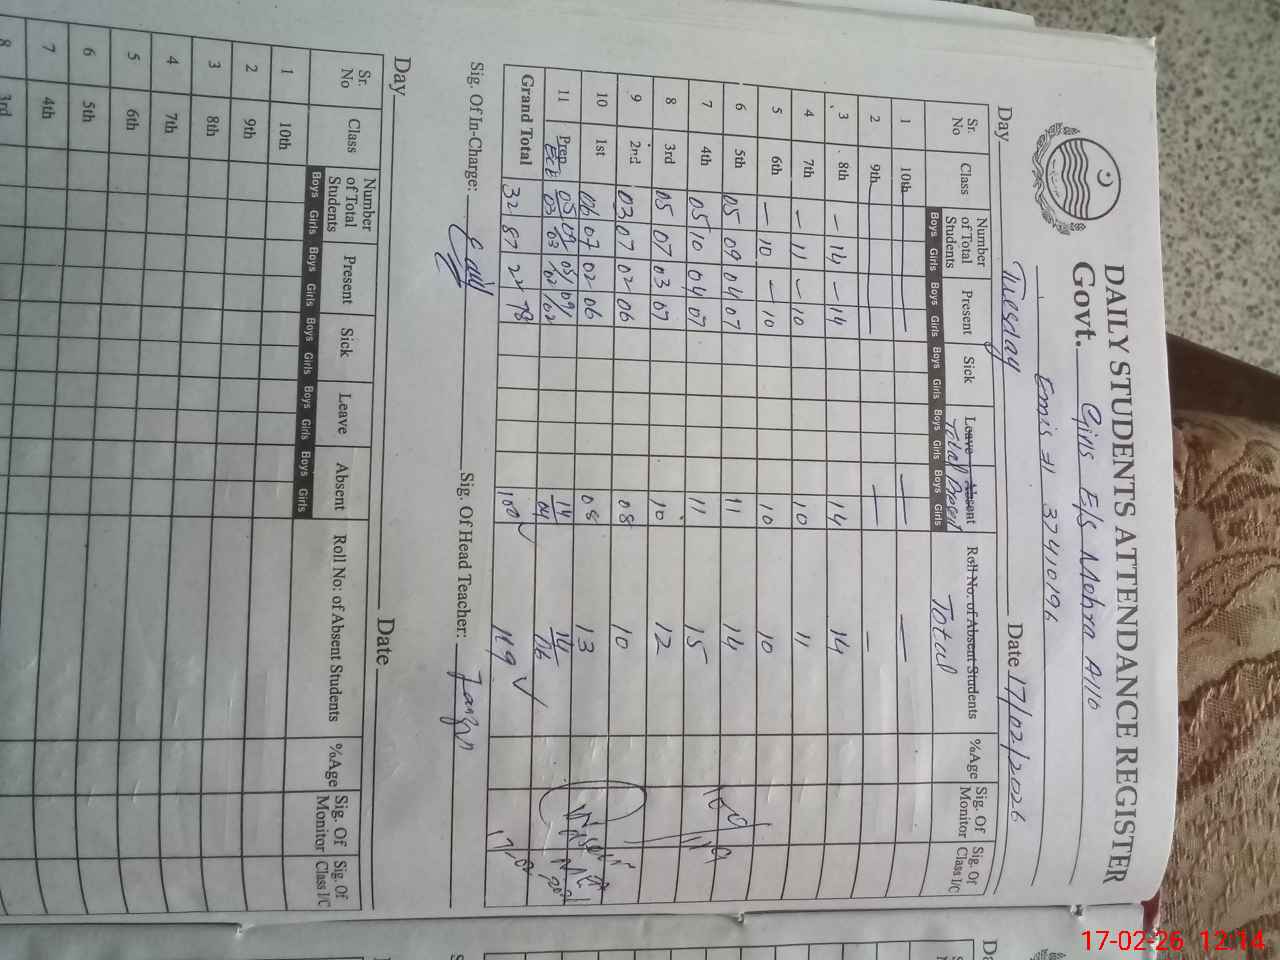 DAILY STUDENTS ATTENDANCE REGISTER
Govt. Girls E/S Mohra Allo
Emis # 37410196
Day Tuesday Date 17/02/2026
Sr. No Class Number of Total Students Present Sick Leave Absent Roll No: of Absent Students %Age Sig. Of Monitor Sig. Of Class I/C
Total Present Total
Boys Girls Boys Girls Boys Girls Boys Girls Boys Girls
1 10th — —
2 9th — —
3 8th – 14 – 14 14 14
4 7th – 11 – 10 10 11
5 6th – 10 – 10 10 10
6 5th 05 09 04 07 11 14
7 4th 05 10 04 07 11 15
8 3rd 05 07 03 07 10 12
9 2nd 03 07 02 06 08 10
10 1st 06 07 02 06 08 13
11 Prep 05 09 05 09 14 14
ECE 03 03 02 02 04 06
Grand Total 32 87 22 78 100 119
Sig. Of In-Charge: Sig. Of Head Teacher:
Day Date
Sr. No Class Number of Total Students Present Sick Leave Absent Roll No: of Absent Students %Age Sig. Of Monitor Sig. Of Class I/C
Boys Girls Boys Girls Boys Girls Boys Girls Boys Girls
1 10th
2 9th
3 8th
4 7th
5 6th
6 5th
7 4th
8 3rd
17-02-26 12:14